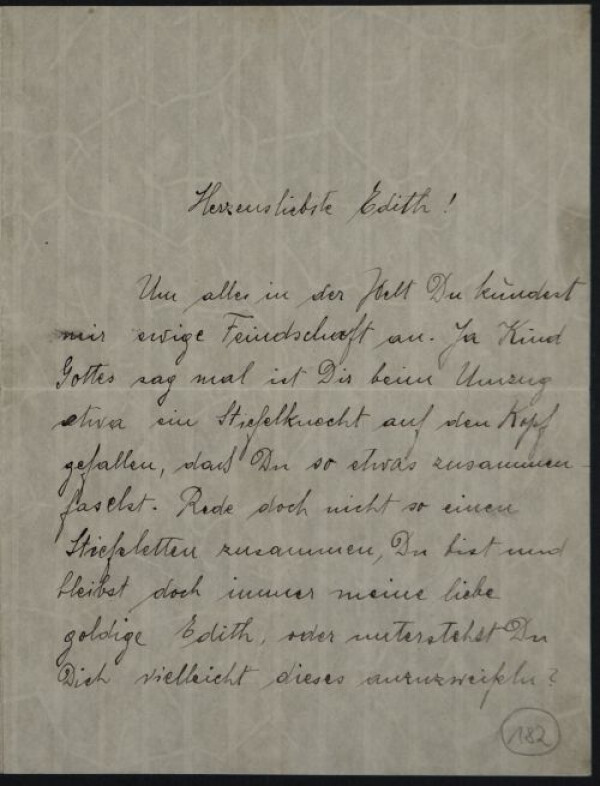 Herzensliebste Edith!
Um alles in der Welt Du kündest
mir ewige Feindschaft an. Ja Kind
Gottes sag mal ist Dir beim Umzug
etwa ein Stiefelknecht auf den Kopf
gefallen, daß Du so etwas zusammen-
faselst. Rede doch nicht so einen
Stiefzletten zusammen, Du bist und
bleibst doch immer meine liebe
goldige Edith, oder unterstehst Du
Dich vielleicht dieses anzuzweifeln?
182